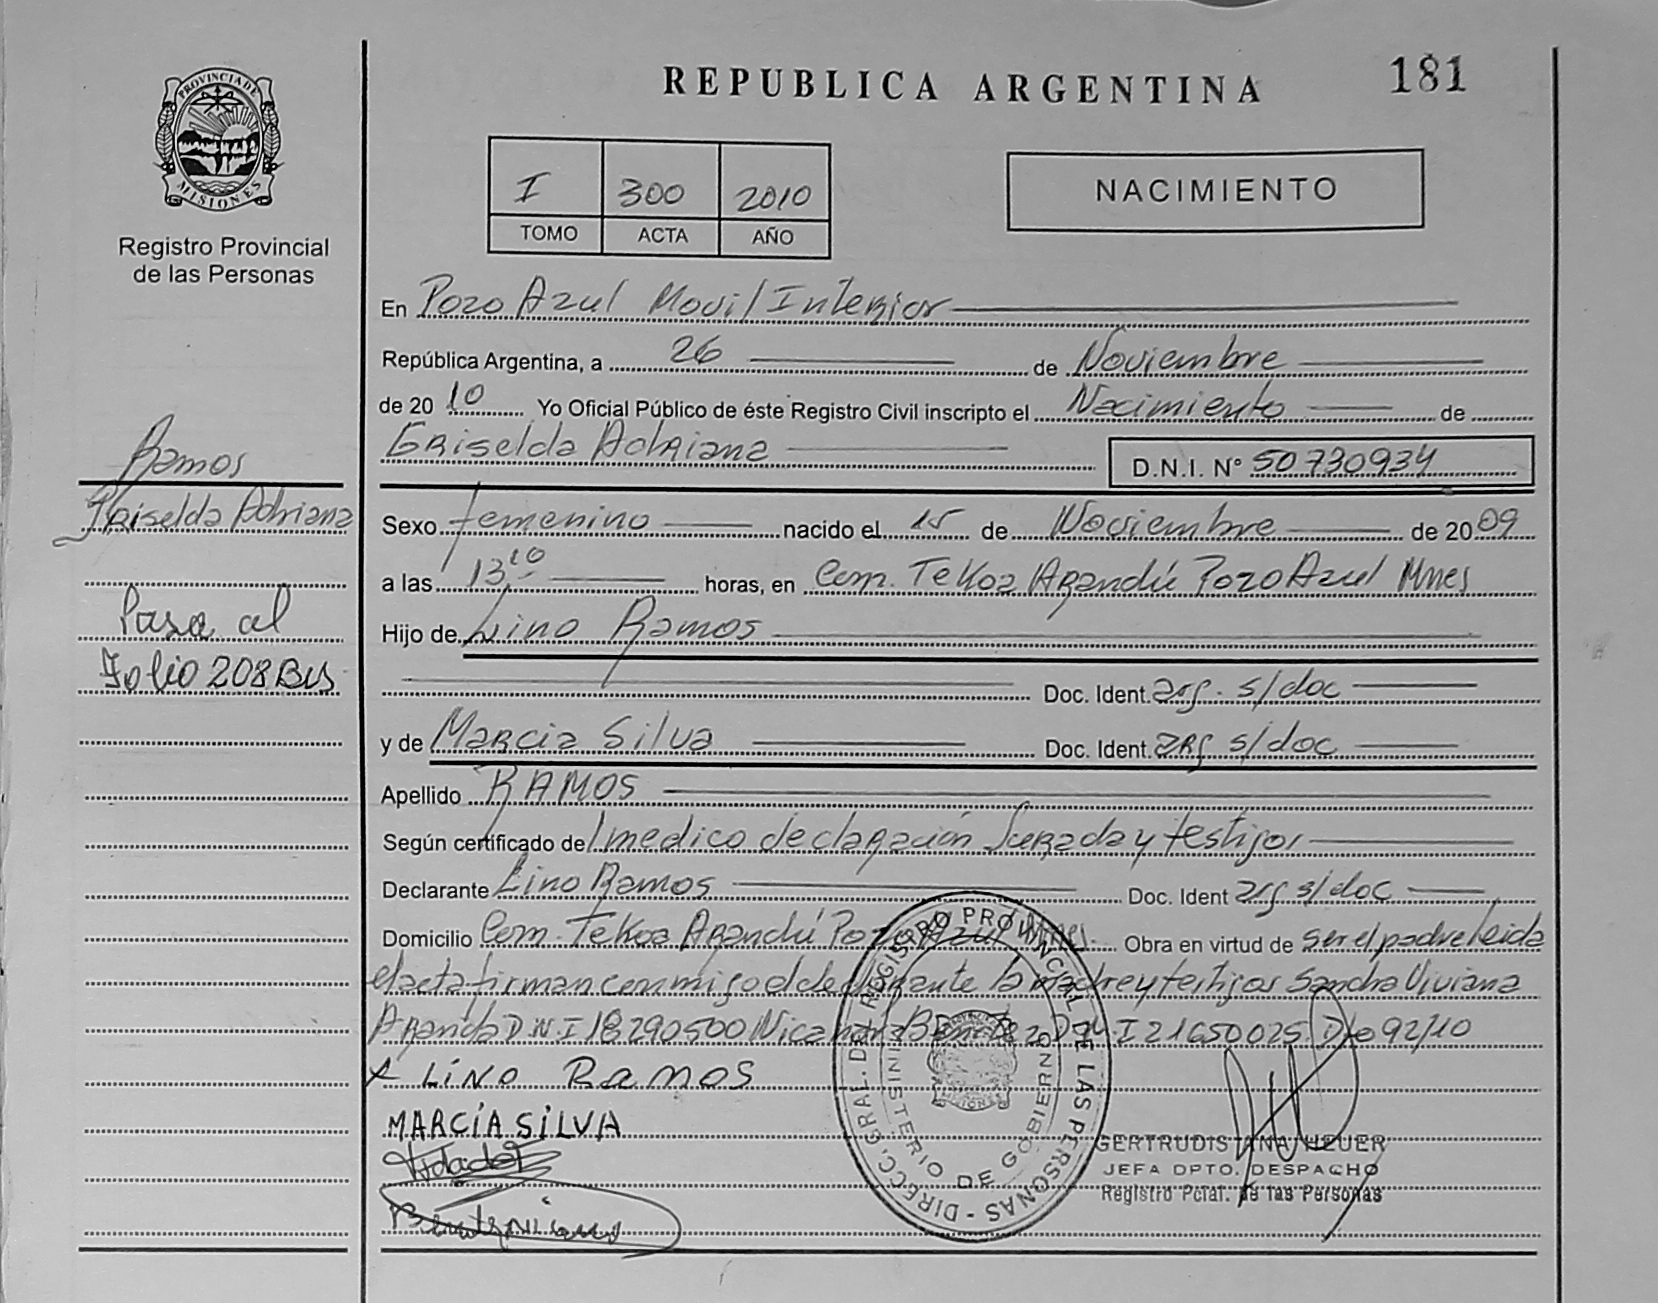 PROVINCIA DE
MISIONES
Registro Provincial
de las Personas
REPUBLICA ARGENTINA
181
I 300 2010
TOMO ACTA AÑO
NACIMIENTO
En Pozo Azul Movil Interior
República Argentina, a 26 de Noviembre
de 2010 Yo Oficial Público de éste Registro Civil inscripto el Nacimiento de
Griselda Adriana D.N.I. N° 50730934
Ramos
Griselda Adriana
Pasa al
Folio 208 Bis
Sexo femenino nacido el 15 de Noviembre de 2009
a las 13,10 horas, en Com. Tekoa Arandú Pozo Azul Mnes
Hijo de Lino Ramos
Doc. Ident. arg. s/doc
y de Marcia Silva Doc. Ident. arg s/doc
Apellido RAMOS
Según certificado de medico declaración Jurada y testigos
Declarante Lino Ramos Doc. Ident arg s/doc
Domicilio Com. Tekoa Arandú Pozo Azul Mnes. Obra en virtud de ser el padre leida
el acta firman conmigo el declarante la madre y testigos Sandra Viviana
Aranda D.N.I 18290500 Nicanor Benitez D.N.I 21650025. Dto 92/10
X LINO RamoS
MARCIA SILVA
DIRECC. GRAL. DEL REGISTRO PROVINCIAL DE LAS PERSONAS -
MINISTERIO DE GOBIERNO
MISIONES
GERTRUDIS ANA HEUER
JEFA DPTO. DESPACHO
Registro Pcial. de las Personas